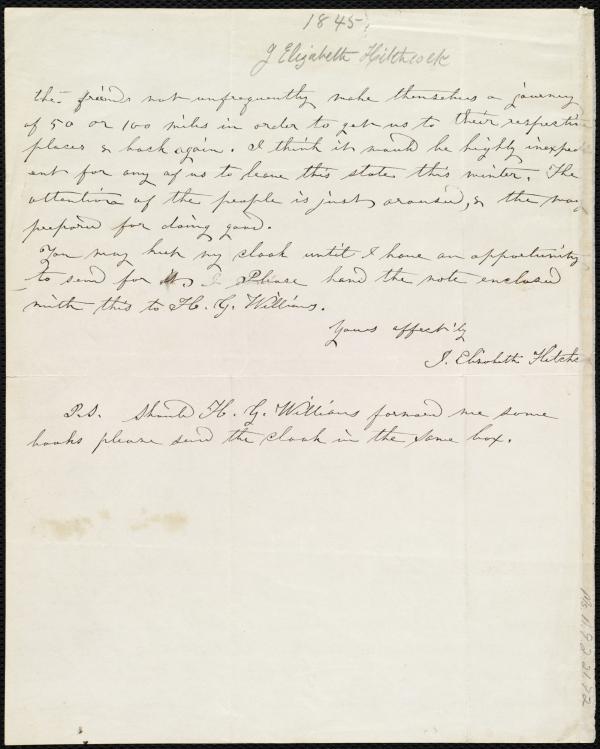 1845.
J Elizabeth Hitchcock
the friends not unfrequently make themselves a journey
of 50 or 100 miles in order to get us to their respective
places & back again. I think it would be highly inexpedi
ent for any of us to leave this state this winter. The
attention of the people is just aroused, & the way
prepared for doing good.
You may keep my cloak until I have an opportunity
to send for it. Please hand the note enclosed
with this to H. G. Williams.
Yours affect'ly
J. Elizabeth Hitchc
P.S. Should H. G. Williams forward me some
books please send the cloak in the same box.